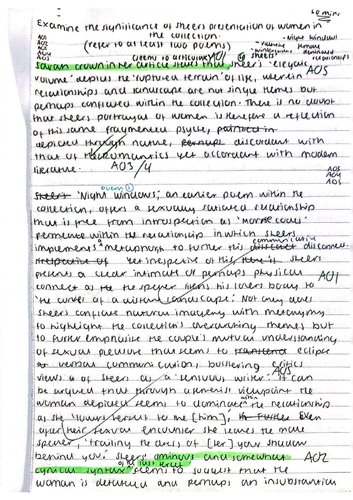 60 min
Examine the significance of sheers presentation of women in
the collection.
(refer to at least two poems)
- Night Windows
AO5
AO1
sheers
Sarah crown in her article states that, sheers' 'elegaic
volume' depicts the 'ruptured terrain of life', wherein
AO5
relationships and landscape are not single themes but
perhaps conflated within the collection. There is no doubt
that sheers portrayal of women is therefore a reflection
of this same fragmented psyche, painted in
depicted through nature, perhaps discordant with
that of romantics yet accordant with modern
literature.
AO3/4
poem ①
Sheers 'Night Windows', an earlier poem within the
collection, offers a sexually satiated relationship
that is free from introspection as 'morse codes'
permeate within the relationship in which sheers
implements a metaphor to further this communicative disconnect
irrespective of Yet irrespective of this, sheers
presents a clear intimate or perhaps physical
connect as the speaker likens his lovers body to
AO1
'the curve of a distant landscape'. Not only does
sheers conflate natural imagery with
to highlight the collection's overarching themes but
to further emphasise the couple's mutual understanding
of sexual pleasure that seems to eclipse
verbal communication, bolstering critics
AO5
views of sheers as a 'sensuous writer'. It can
be argued that through a feminist viewpoint the
woman depicted seems to dominate within the relationship
as she 'lowers herself to me [him]'. Even
after their sexual encounter she leaves the male
speaker, 'trailing the dress of [her] your shadow
behind you'. Sheers' ominous and somewhat
AO2
cynical syntax of the last tercet seems to suggest that the
woman is detached and perhaps an insubstantial